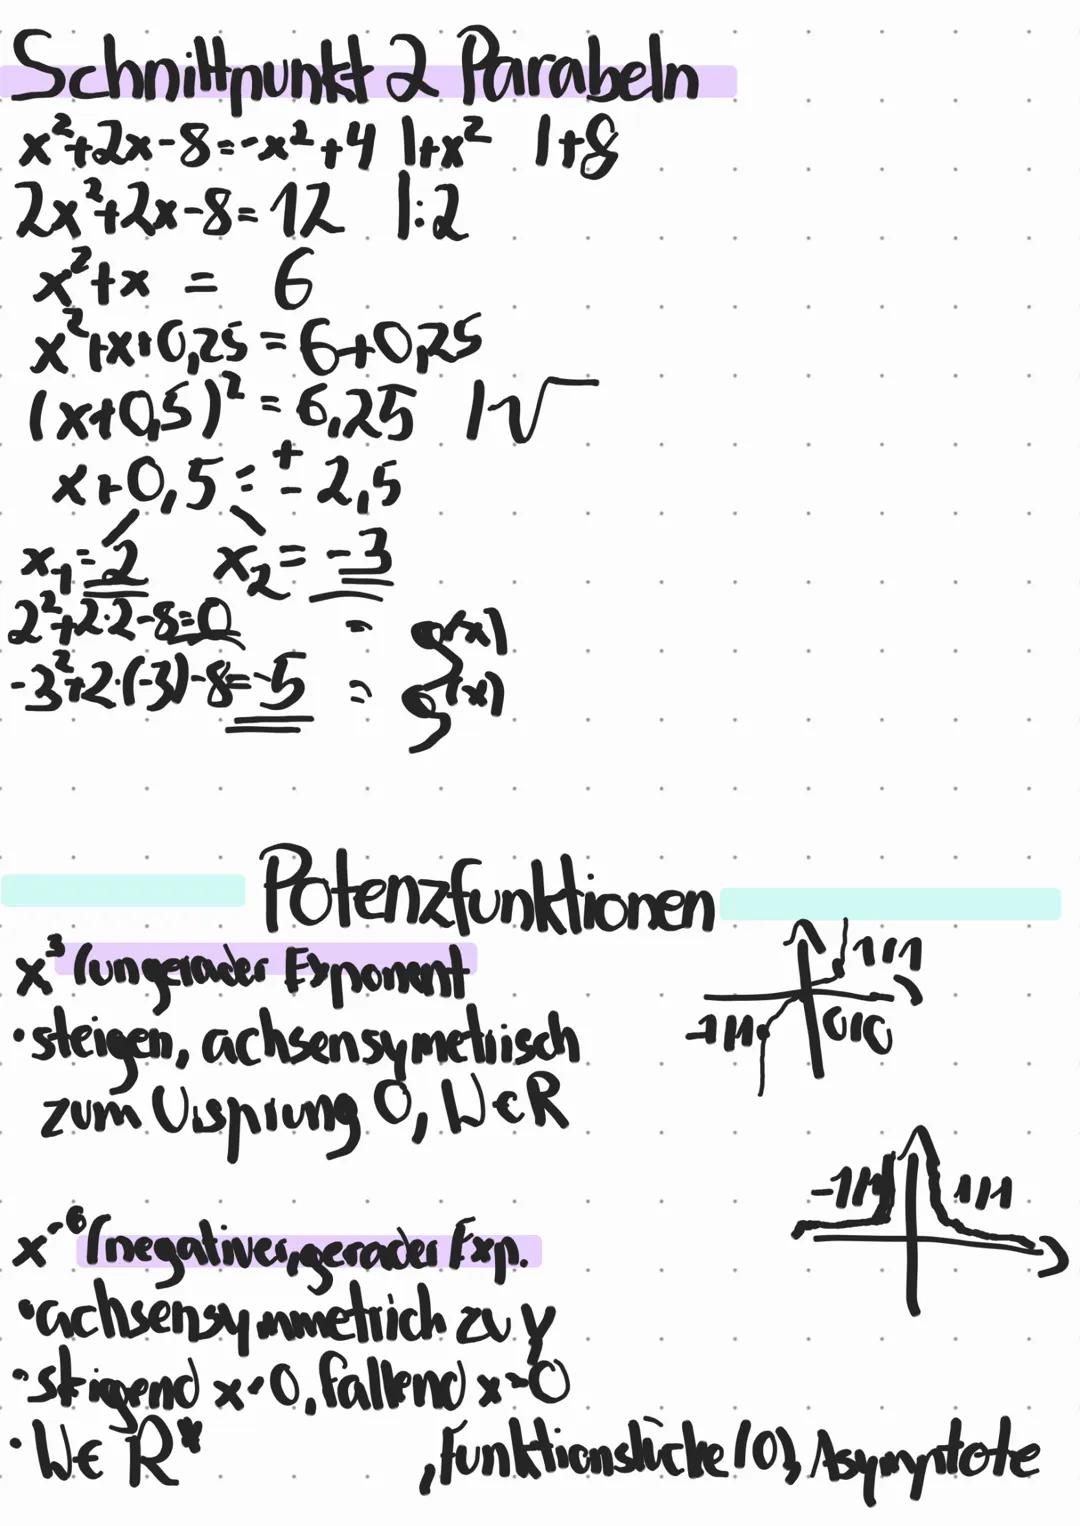 Schnittpunkt 2 Parabeln
x²+2x-8=-x²+4 |+x² |+8
2x²+2x-8=12 |:2
x²+x = 6
x²+x+0,25=6+0,25
(x+0,5)²=6,25 |√
x+0,5=±2,5
x₁=2 x₂=-3
2²+2·2-8=0 = g(x)
-3²+2·(-3)-8=-5 = g(x)
Potenzfunktionen
x³ (ungerader Exponent
1/1
•steigen, achsensymetriisch
-1/1 0/0
zum Ursprung 0, W∈R
-1/1 1/1
x⁻⁶ (negativer, gerader Exp.
•achsensymmetrich zu y
•steigend x<0, fallend x>0
•W∈ R* , funktionslücke (0), Asymptote